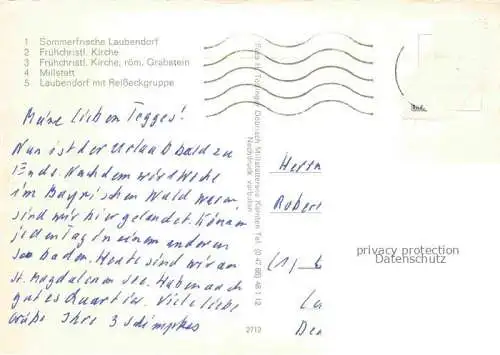 1 Sommerfrische Laubendorf
2 Frühchristl. Kirche
3 Frühchristl. Kirche, röm. Grabstein
4 Millstatt
5 Laubendorf mit Reißeckgruppe
Meine lieben Tegges!
Nun ist der Urlaub bald zu
Ende. Nachdem wir 1 Woche
im Bayrischen Wald waren
sind wir hier gelandet. Können
jeden Tag in einem anderen
See baden. Heute sind wir am
St. Magdalenen See. Haben auch
gutes Quartier. Viele liebe
Grüße Ihre 3 Schimpkes
Nachdruck verboten
2712
Herrn
Robert
privacy protection
Datenschutz